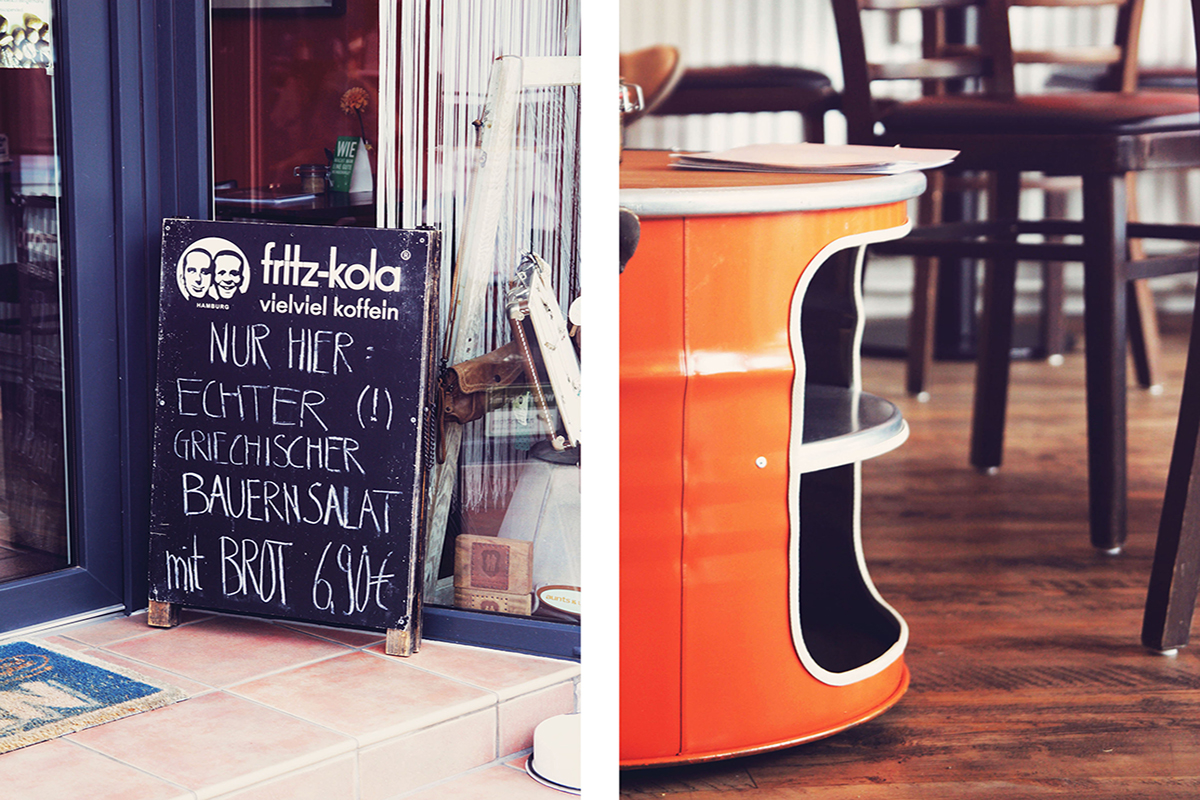 WIE
fritz-kola®
HAMBURG
vielviel koffein
NUR HIER:
ECHTER (!)
GRIECHISCHER
BAUERNSALAT
mit BROT 6,90€